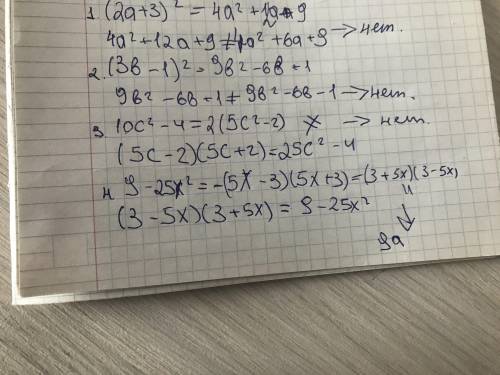 1 (2a+3)² = 4a²+12a+9
4a²+12a+9 ≠ 4a²+6a+9 → нет.
2. (3в-1)² = 9в²-6в+1
9в²-6в+1 ≠ 9в²-6в-1 → нет.
3 10с²-4=2(5с²-2) → нет.
(5с-2)(5с+2)=25с²-4
4 9-25x²=-(5x-3)(5x+3)=(3+5x)(3-5x)
(3-5x)(3+5x)=9-25x²
↓
да